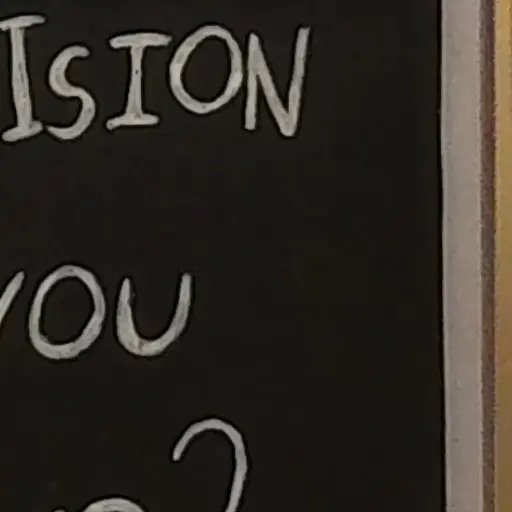 ISION
YOU
?